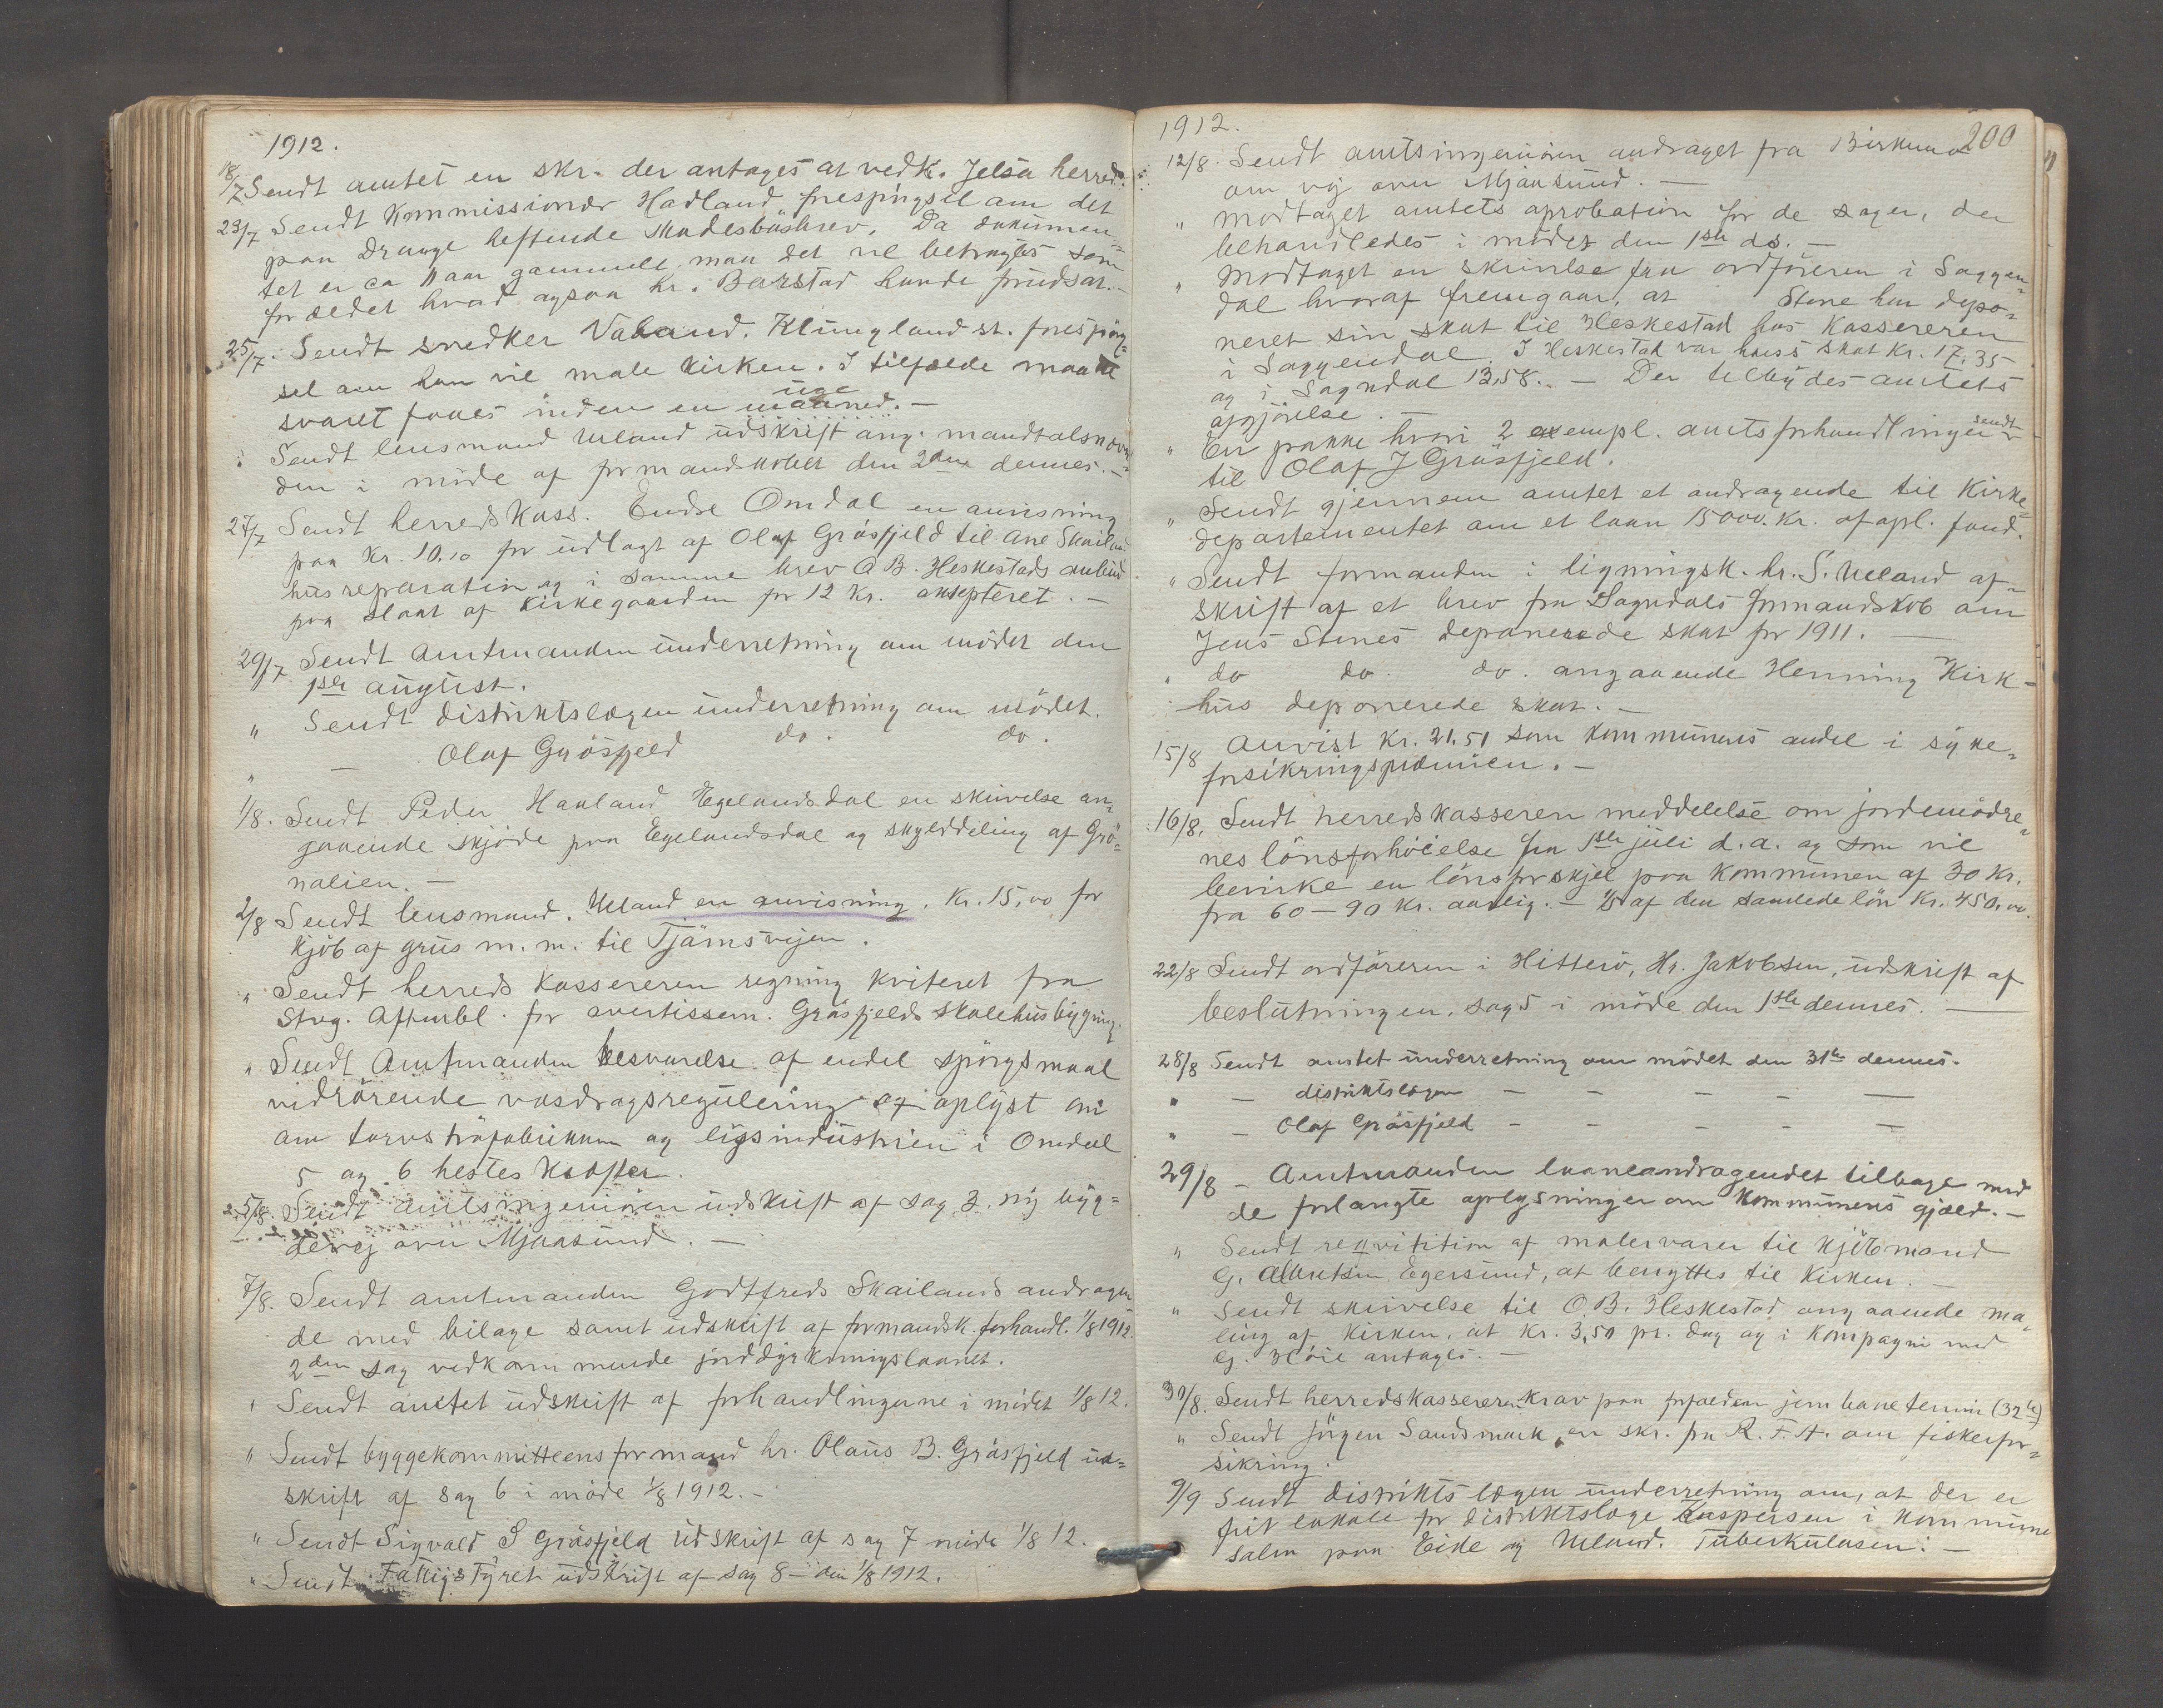 1912.
18/7 Sendt amtet en skr. der antages at vedk. Jelsa herred.
23/7 Sendt Kommissionær Hadland forespörgsel om det
paa Drange heftende skadesbösbrev. Da dokumen=
tet er ca 11 aar gammelt maa det vel betragtes som
forældet hvad ogsaa hr. Barstad havde forudsat.-
25/7. Sendt snedker Valand. Klungland st. forespörg=
sel om han vil male Kirken. I tilfælde maatte
uge
svaret faaes inden en maaned. -
Sendt lensmand Ueland udskrift ang. mandtalsnovn=
den i möde af formandskabet den 2den dennes. -
27/7 Sendt herredskass. Endre Omdal en anvisning
paa kr. 10.10 for udlagt af Olaf Gräsfjeld til Ane Skailand
husreparation og i samme brev O B. Heskestads anbud
paa slaat af Kirkegaarden for 12 kr. aksepteret. -
29/7 Sendt Amtmanden underretning om mödet den
1ste august.
" Sendt distriktslægen underretning om mödet.
" — Olaf Gräsfjeld do. do.
1/8. Sendt Peder Haaland Egelandsdal en skrivelse an=
gaaende skjöde paa Egelandsdal og skylddeling af Grö=
nalien. —
2/8 Sendt lensmand. Ueland en anvisning. Kr. 15,00 for
kjöb af grus m. m. til Tjärnsvejen.
" Sendt herreds Kassereren regning kviteret fra
Stvg. Aftenbl. for avertissem. Gräsfjelds skolehusbygning.
" Sendt Amtmanden besvarelse af endel spörgsmaal
vidrörende vasdragsregulering og oplyst om
om torvströfabrikken og ligsindustrien i Omdal
5 og 6 hestes kräfter.
5/8. Sendt amtsingeniören udskrift af sag 3. ny byg=
devej over Mjaasund. —
7/8. Sendt amtmanden Godtfreds Skailands andragen
de med bilage samt udskrift af formandsk. forhandl. 1/8 1912.
2den sag vedkommende jorddyrkningslaanet.
" Sendt amtet udskrift af forhandlingerne i mödet 1/8 12.
" Sendt byggekommitteens formand hr. Olaus B. Gräsfjeld ud=
skrift af sag 6 i möde 1/8 1912. -
" Sendt Sigvald S Gräsfjeld udskrift af sag 7 möde 1/8 12.
" Sendt Fattigstyret udskrift af sag 8 - den 1/8 1912.
1912.
200
12/8. Sendt amtsingeniören andraget fra Birkemo
om vej over Mjaasund. —
" Modtaget amtets aprobation for de sager, der
behandledes i mödet den 1ste ds. —
" Modtaget en skrivelse fra ordföreren i Soggen=
dal hvoraf fremgaar, at Stene har depo=
neret sin skat til Heskestad hos Kassereren
i Soggendal. I Heskestad var hans skat kr. 17.35
og i Sogndal 13,58. - Der tilbydes amtets
afgjörelse. —
sendt
" En pakke hvori 2 exempl. amtsforhandlinger
til Olaf J Gräsfjeld.
" Sendt gjennem amtet et andragende til Kirke=
departementet om et laan 15000. kr. af opl. fond.
" Sendt formanden i ligningsk. hr. S. Ueland af=
skrift af et brev fra Sogndals formandskab om
Jens Stenes deponerede skat for 1911. —
" do do. do. angaaende Henning Kirk=
hus deponerede skat. —
15/8 Anvist kr. 21.51 som kommunens andel i syke=
forsikringspræmien. —
16/8. Sendt herredskasseren meddelelse om jordemödre=
nes lönsforhöielse fra 1ste juli d. a. og som vil
bevirke en lönsforskjel paa Kommunen af 30 kr.
fra 60 - 90 kr. aarlig. - 1/5 af den samlede lön kr. 450.00.
22/8 Sendt ordföreren i Hitterö, Hr. Jakobsen, udskrift af
beslutningen. sag 5 i möde den 1ste dennes. —
28/8 Sendt amtet underretning om mödet den 31te dennes.
" — distriktslægen - - - - —
" — Olaf Gräsfjeld - - - - —
29/8 - Amtmanden laaneandragendet tilbage med
de forlangte oplysninger om Kommunens gjæld. —
" Sendt requisition af malervarer til Kjöbmand
G. Albretsen Egersund, at benyttes til Kirken. —
" Sendt skrivelse til O. B. Heskestad angaaende ma=
ling af kirken, at kr. 3,50 pr. dag og i Kompagni med
G. Höie antages. —
31/8. Sendt herredskassereren krav paa forfalden jernbane termin (32te)
" Sendt Jörgen Sandsmark en skr. fra R. F. A. om fiskerfor=
sikring.
9/9 Sendt distrikts lægen underretning om, at der er
frit lokale for distriktslæge Kaspersen i kommune
salen paa Eide og Ueland. Tuberkulosen. —